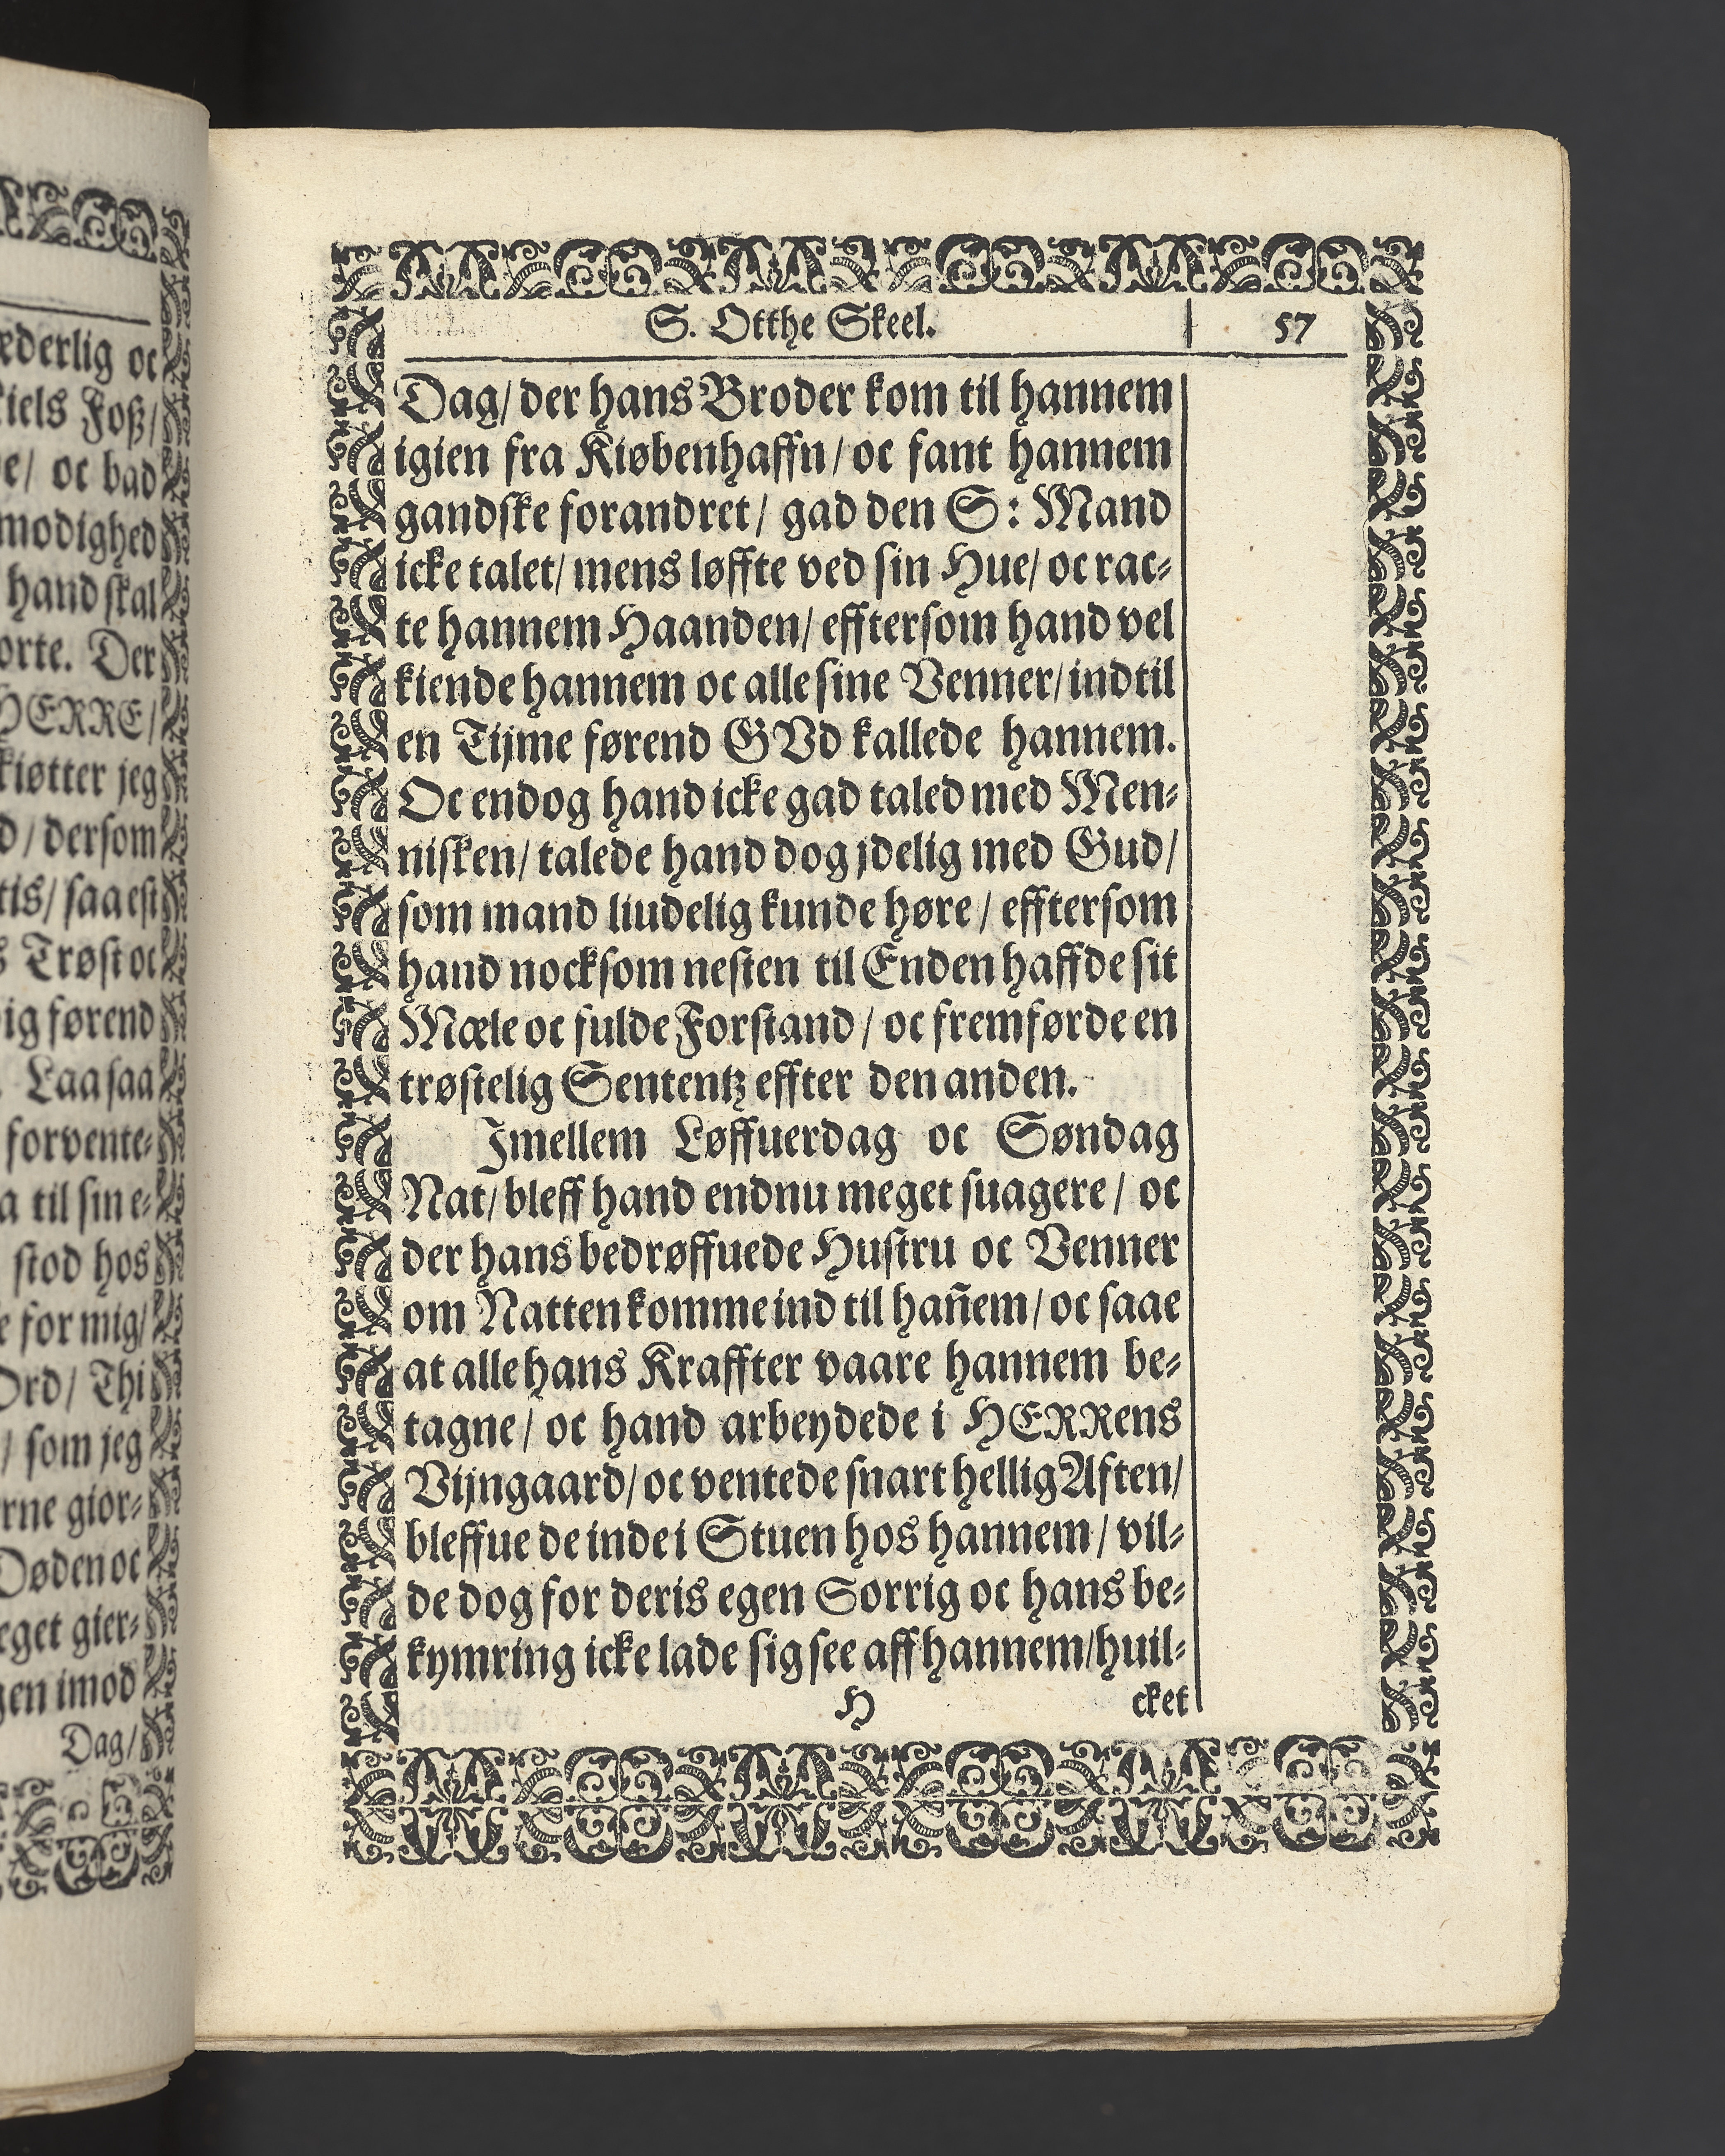 ederlig oc
iels Foß/
e/ oc bad
modighed
hand skal
orte. Der
HERRE/
kiøtter jeg
d/ dersom
tis/ saa est
s Trøst oc
ig førend
Laa saa
forvente-
a til sin e-
stod hos
e for mig/
Ord/ Thi
/ som jeg
rne gior-
Døden oc
eget gier-
gen imod
Dag/
S. Otthe Skeel. 57
Dag/ der hans Broder kom til hannem
igien fra Kiøbenhaffn/ oc fant hannem
gandske forandret/ gad den S: Mand
icke talet/ mens løffte ved sin Hue/ oc rac-
te hannem Haanden/ efftersom hand vel
kiende hannem oc alle sine Venner/ indtil
en Tijme førend GVd kallede hannem.
Oc endog hand icke gad taled med Men-
nisken/ talede hand dog jdelig med Gud/
som mand liudelig kunde høre/ efftersom
hand nocksom nesten til Enden haffde sit
Mæle oc fulde Forstand/ oc fremførde en
trøstelig Sententz effter den anden.
Jmellem Løffuerdag oc Søndag
Nat/ bleff hand endnu meget suagere/ oc
der hans bedrøffuede Hustru oc Venner
om Natten komme ind til hañem/ oc saae
at alle hans Kraffter vaare hannem be-
tagne/ oc hand arbeydede i HERRens
Vijngaard/ oc ventede snart hellig Aften/
bleffue de inde i Stuen hos hannem/ vil-
de dog for deris egen Sorrig oc hans be-
kymring icke lade sig see aff hannem/ huil-
H cket